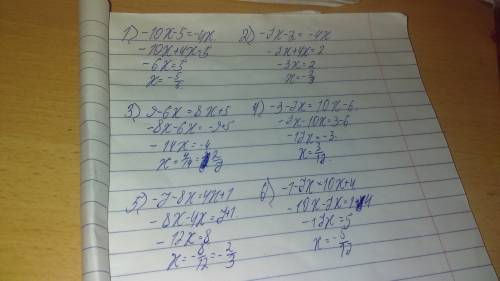 1) -10x-5=-4x
-10x+4x=5
-6x=5
x=-5/6
2) -7x-2=-4x
-7x+4x=2
-3x=2
x=-2/3
3) 9-6x=8x+5
-8x-6x=-9+5
-14x=-4
x=4/14=2/7
4) -3-2x=10x-6
-2x-10x=3-6
-12x=-3
x=3/12
5) -7-8x=4x+1
-8x-4x=7+1
-12x=8
x=-8/12=-2/3
6) -1-2x=10x+4
-10x-2x=1+4
-12x=5
x=-5/12